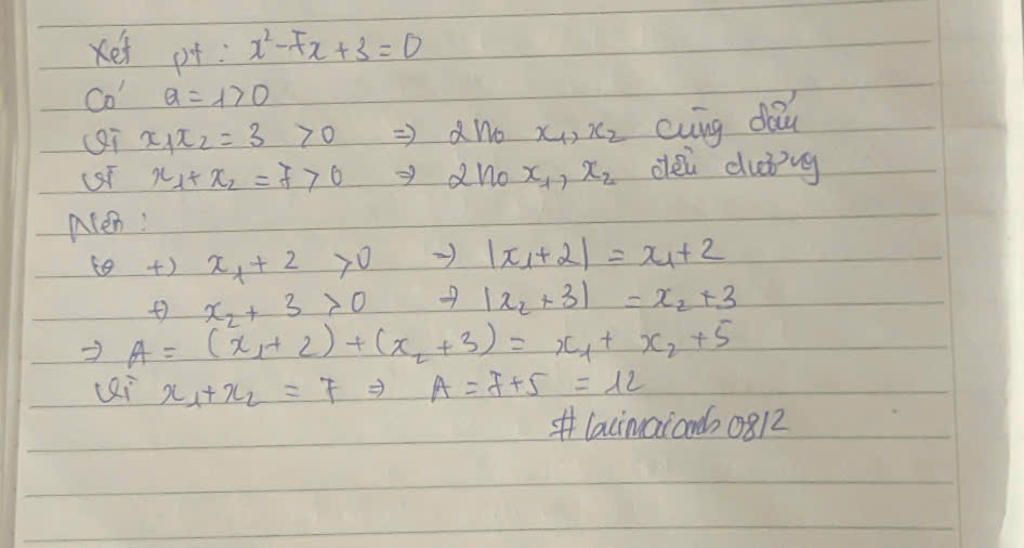 Xét pt : x² - 7x + 3 = 0
Có a = 1 > 0
Vì x₁x₂ = 3 > 0 ⇒ 2 no x₁, x₂ cùng dấu
Vì x₁ + x₂ = 7 > 0 ⇒ 2 no x₁, x₂ đều dương
Nên :
+) x₁ + 2 > 0 ⇒ |x₁ + 2| = x₁ + 2
+) x₂ + 3 > 0 ⇒ |x₂ + 3| = x₂ + 3
⇒ A = (x₁ + 2) + (x₂ + 3) = x₁ + x₂ + 5
Vì x₁ + x₂ = 7 ⇒ A = 7 + 5 = 12